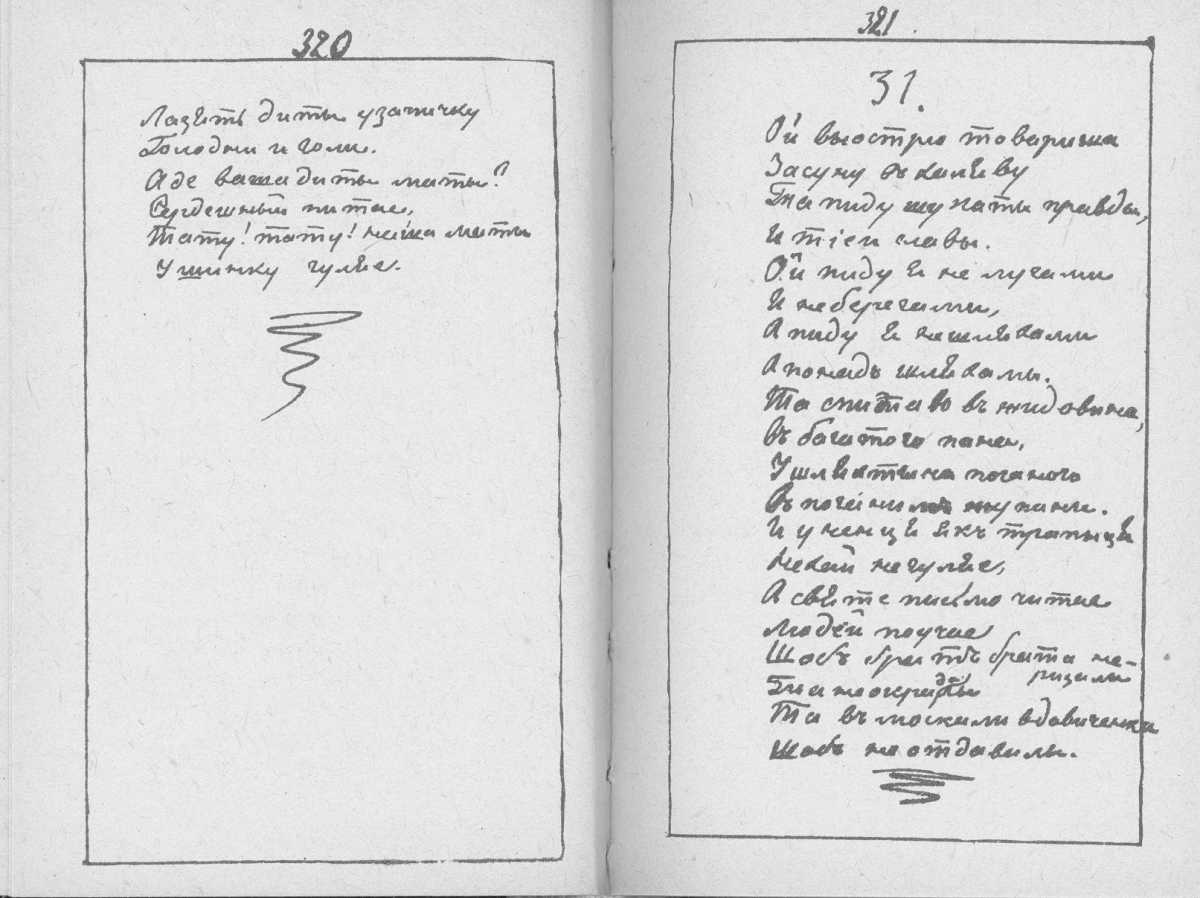 320
Лазять диты узапичку
Голодни и голи.
А де ваша диты маты?
Сердешный питае,
Тату! тату! наша маты
У шинку гуляе.
321
31.
Ой выострю товариша
Засуну въ халяву
Та пиду шукаты правды,
И тіеи славы.
Ой пиду я не лугами
И неберегами,
А пиду я нешляхами
А понадъ шляхамы.
Та спитаю въ жидовина,
Въ багатого пана,
У шляхтича поганого
Въ поганими жупани.
И у ченця якъ трапыця
Нехай негуляе,
А святе письмо читае
Людей поучае
Щобъ братъ брата не-
ризали
Та неокрадалы
Та въ москали вдовиченка
Щобъ не отдавилы.